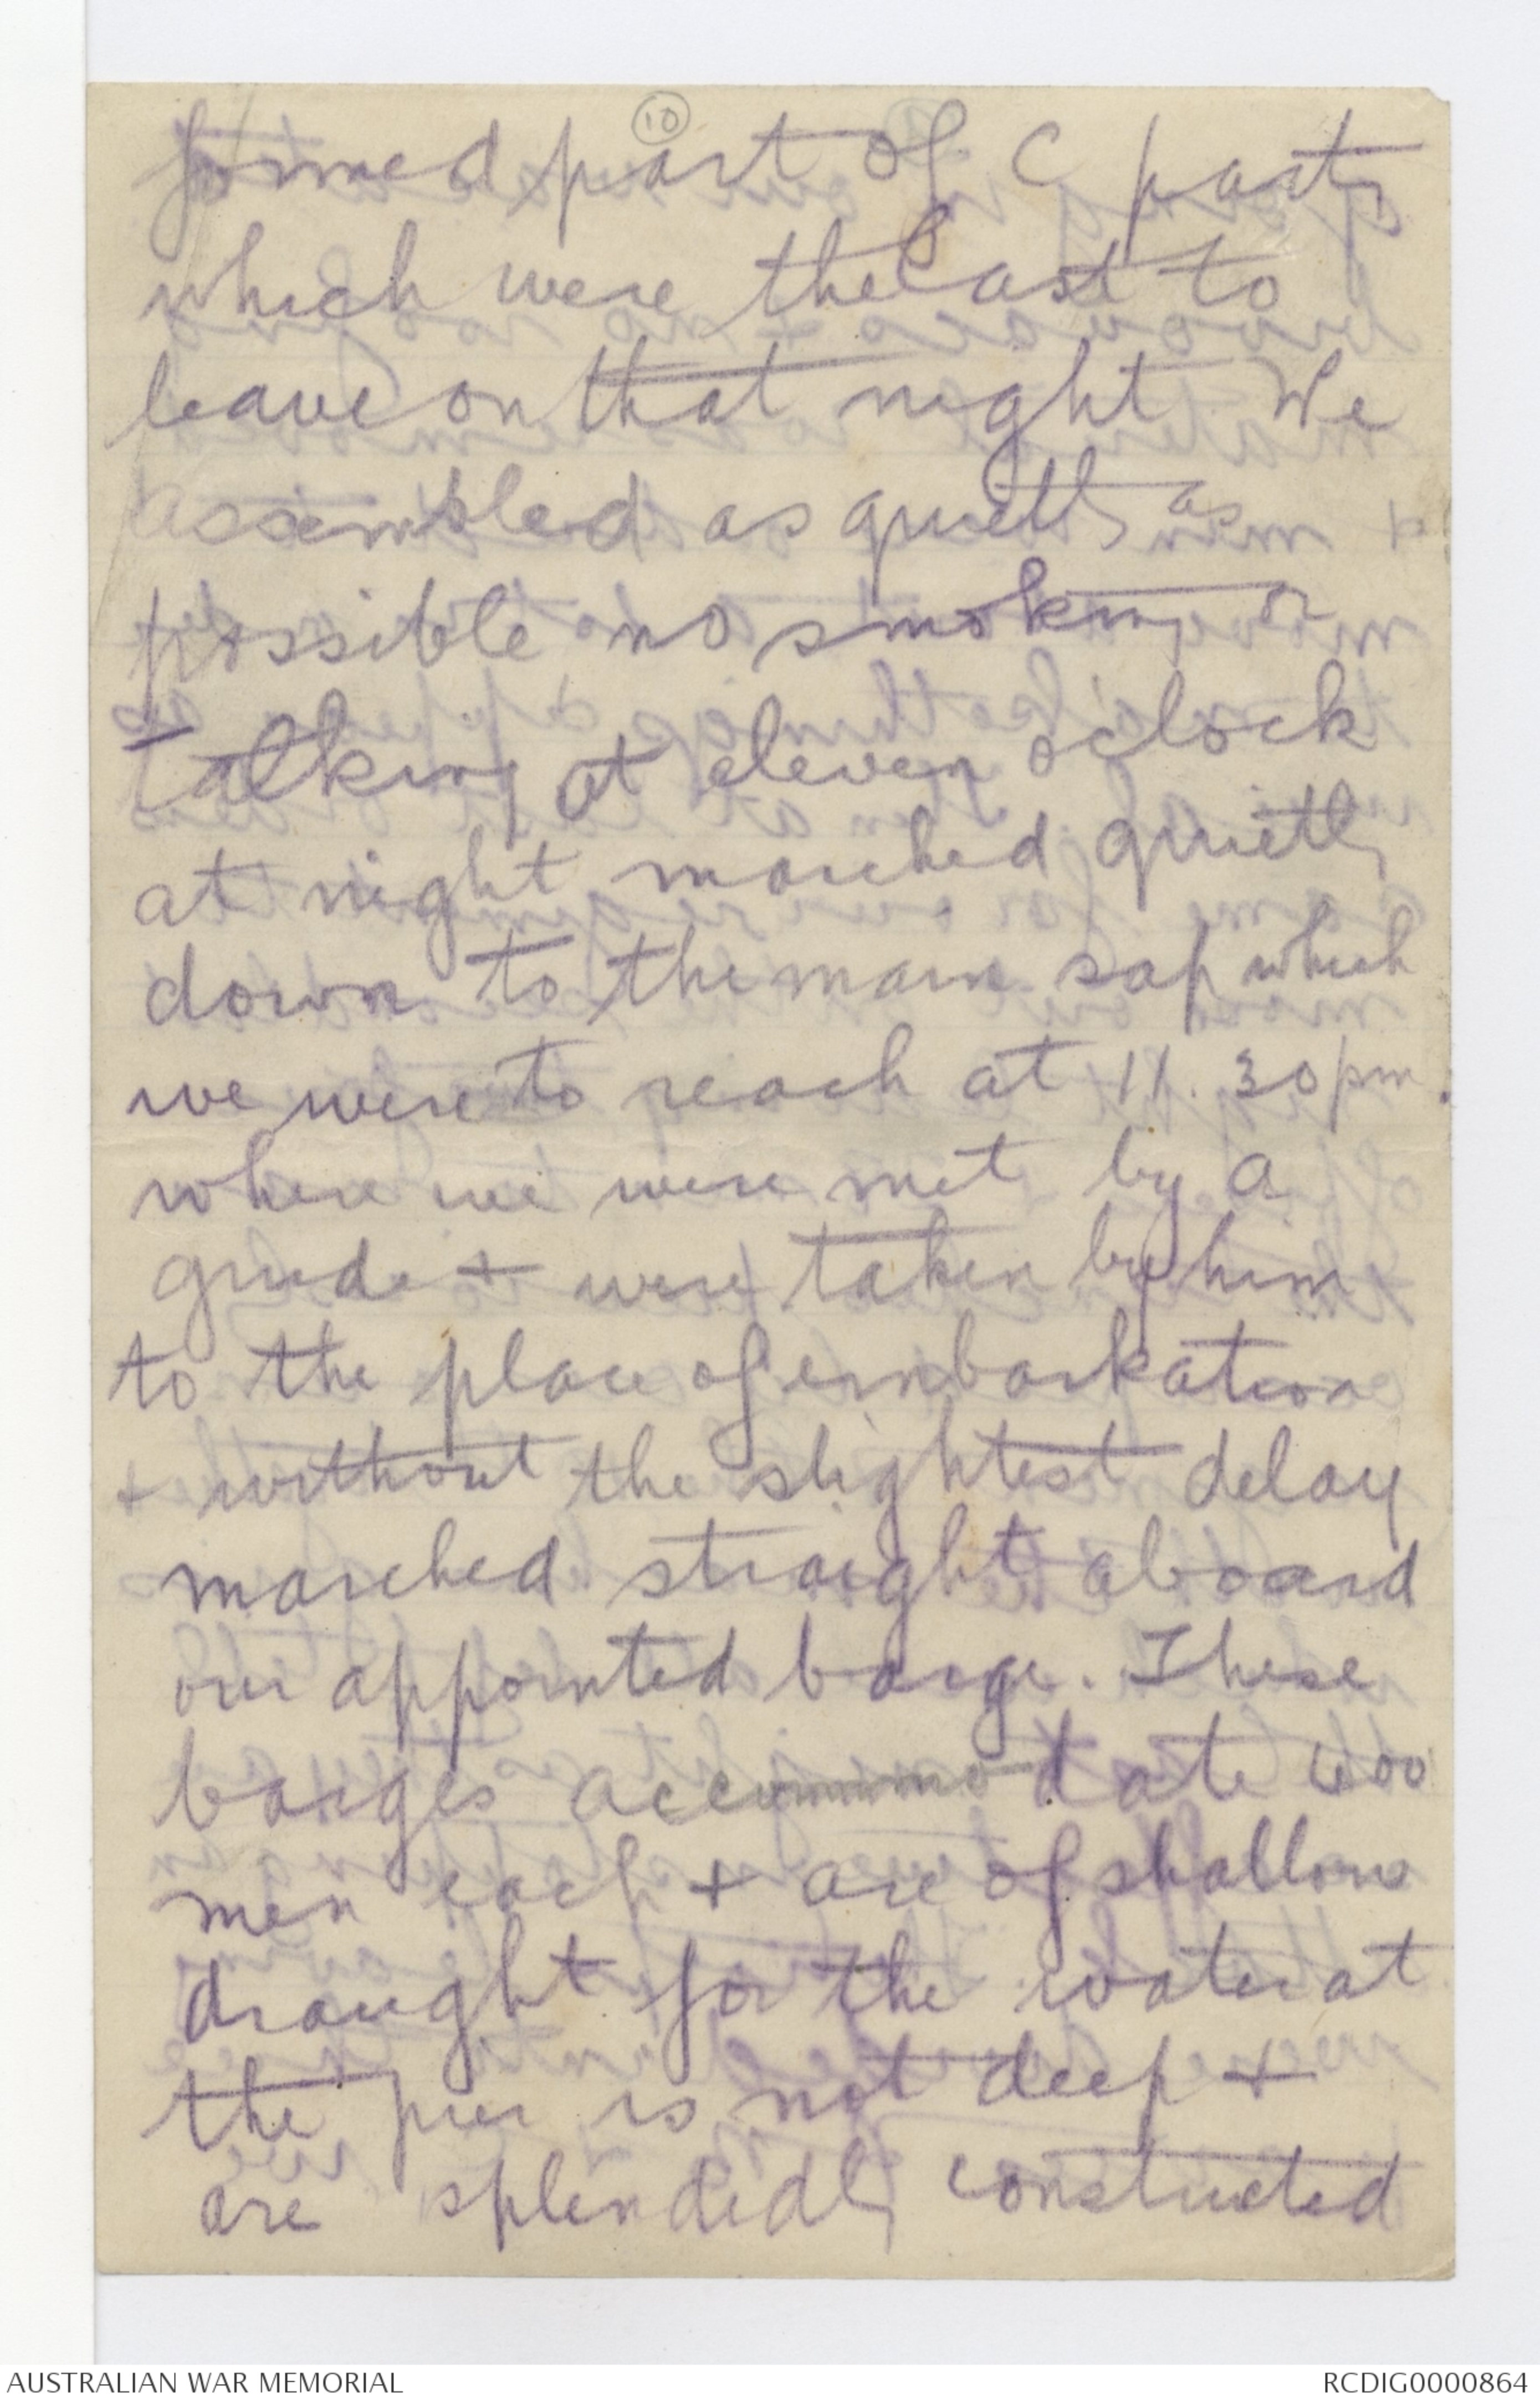 10
formed part of C party
which were the last to
leave on that night We
assembled as quietly as
possible no smoking or
talking at eleven o'clock
at night marched quietly
down to the main sap which
we were to reach at 11.30pm.
where we were met by a
guide + were taken by him
to the place of embarkation
+ without the slightest delay
marched straight aboard
our appointed barge. These
barges accommodate 400
men each + are of shallow
draught for the water at
the pier is not deep +
are splendidly constructed
AUSTRALIAN WAR MEMORIAL
RCDIG0000864